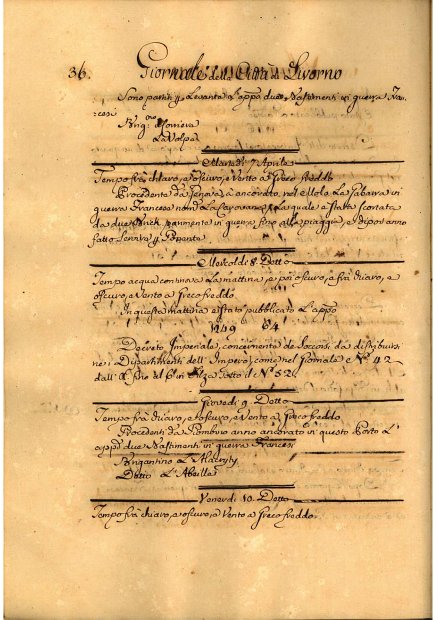 36. Giornale della Città di Livorno
Sono partiti p Levante l'app.o due Bastimenti in guerra Fran-
cesi
Brig.no
La Volpe
Martedì 7 Aprile
Tempo frà chiaro, e oscuro, e Vento a Greco freddo
Procedente da Genova, à ancorato nel Molo La Gabarra in
guerra Francese nom. La Caravane, La quale è stata scortata
da due Brich parimente in guerra fino alla piaggia, e dipoi anno
fatto p Ponente
Mercoldì 8. Detto
Tempo acqua la mattina, e poi oscuro, e frà chiaro, e
oscuro, e Vento a Greco freddo.
In questa mattina è stato pubblicato l'app.o
N 64
Decreto Imperiale, concernente de Soccorsi, da
nei Dipartimenti dell'Impero, come nel Giornale N.o 42
dall' sotto il N.o 52.
Giovedì 9 Detto
Tempo frà chiaro, e oscuro, e Vento a Greco freddo
Procedenti da Piombino anno ancorato in questo Porto l'
app.o due Bastimenti in guerra Francesi
Brigantino
Detto L'Abeille
Venerdì 10. Detto
Tempo frà chiaro, e oscuro, e Vento a Greco freddo.